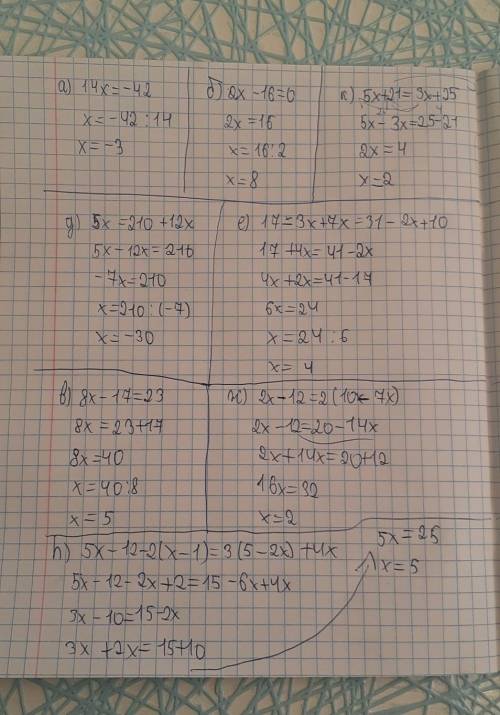 а) 14x = -42
x = -42 : 14
x = -3
б) 2x - 16 = 0
2x = 16
x = 16 : 2
x = 8
к) 5x + 21 = 3x + 25
5x - 3x = 25 - 21
2x = 4
x = 2
д) 5x = 210 + 12x
5x - 12x = 210
-7x = 210
x = 210 : (-7)
x = -30
е) 17 - 3x + 7x = 31 - 2x + 10
17 + 4x = 41 - 2x
4x + 2x = 41 - 17
6x = 24
x = 24 : 6
x = 4
в) 8x - 17 = 23
8x = 23 + 17
8x = 40
x = 40 : 8
x = 5
ж) 2x - 12 = 2(10 - 7x)
2x - 12 = 20 - 14x
2x + 14x = 20 + 12
16x = 32
x = 2
h) 5x - 12 - 2(x - 1) = 3(5 - 2x) + 4x
5x - 12 - 2x + 2 = 15 - 6x + 4x
3x - 10 = 15 - 2x
3x + 2x = 15 + 10
5x = 25
x = 5